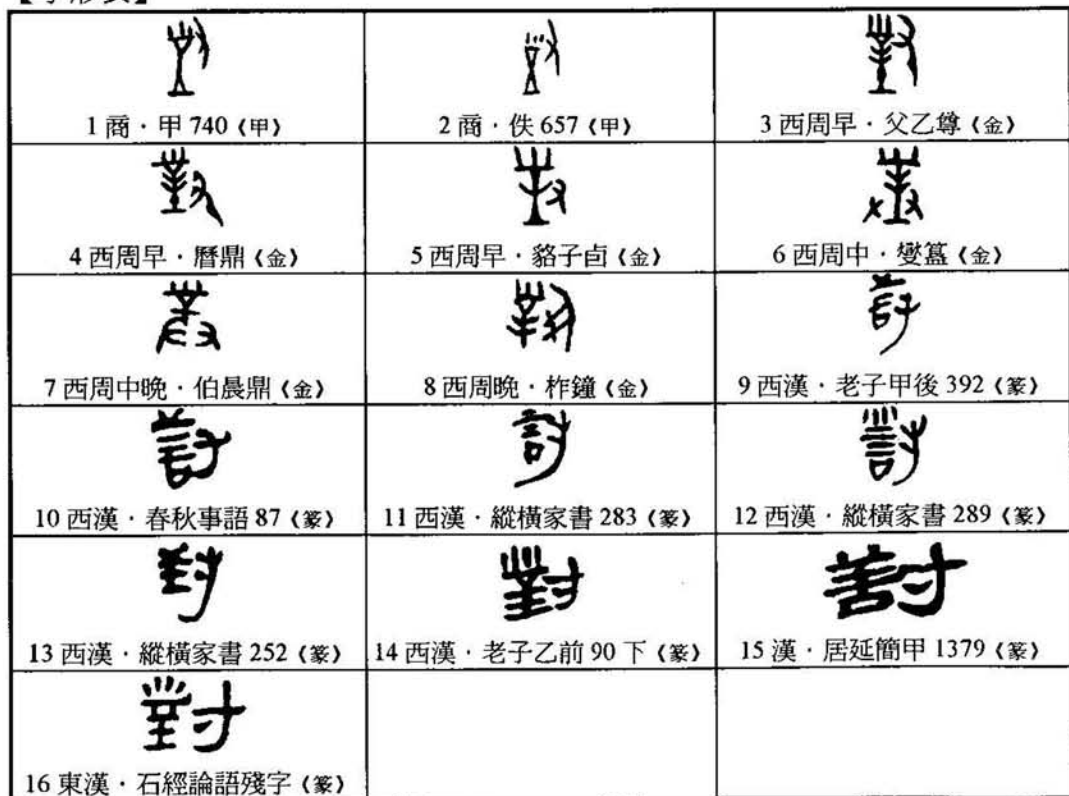 【字形表】
1 商·甲 740《甲》
2 商·佚 657《甲》
3 西周早·父乙尊《金》
4 西周早·曆鼎《金》
5 西周早·貉子卣《金》
6 西周中·燮簋《金》
7 西周中晚·伯晨鼎《金》
8 西周晚·柞鐘《金》
9 西漢·老子甲後 392《篆》
10 西漢·春秋事語 87《篆》
11 西漢·縱橫家書 283《篆》
12 西漢·縱橫家書 289《篆》
13 西漢·縱橫家書 252《篆》
14 西漢·老子乙前 90 下《篆》
15 漢·居延簡甲 1379《篆》
16 東漢·石經論語殘字《篆》